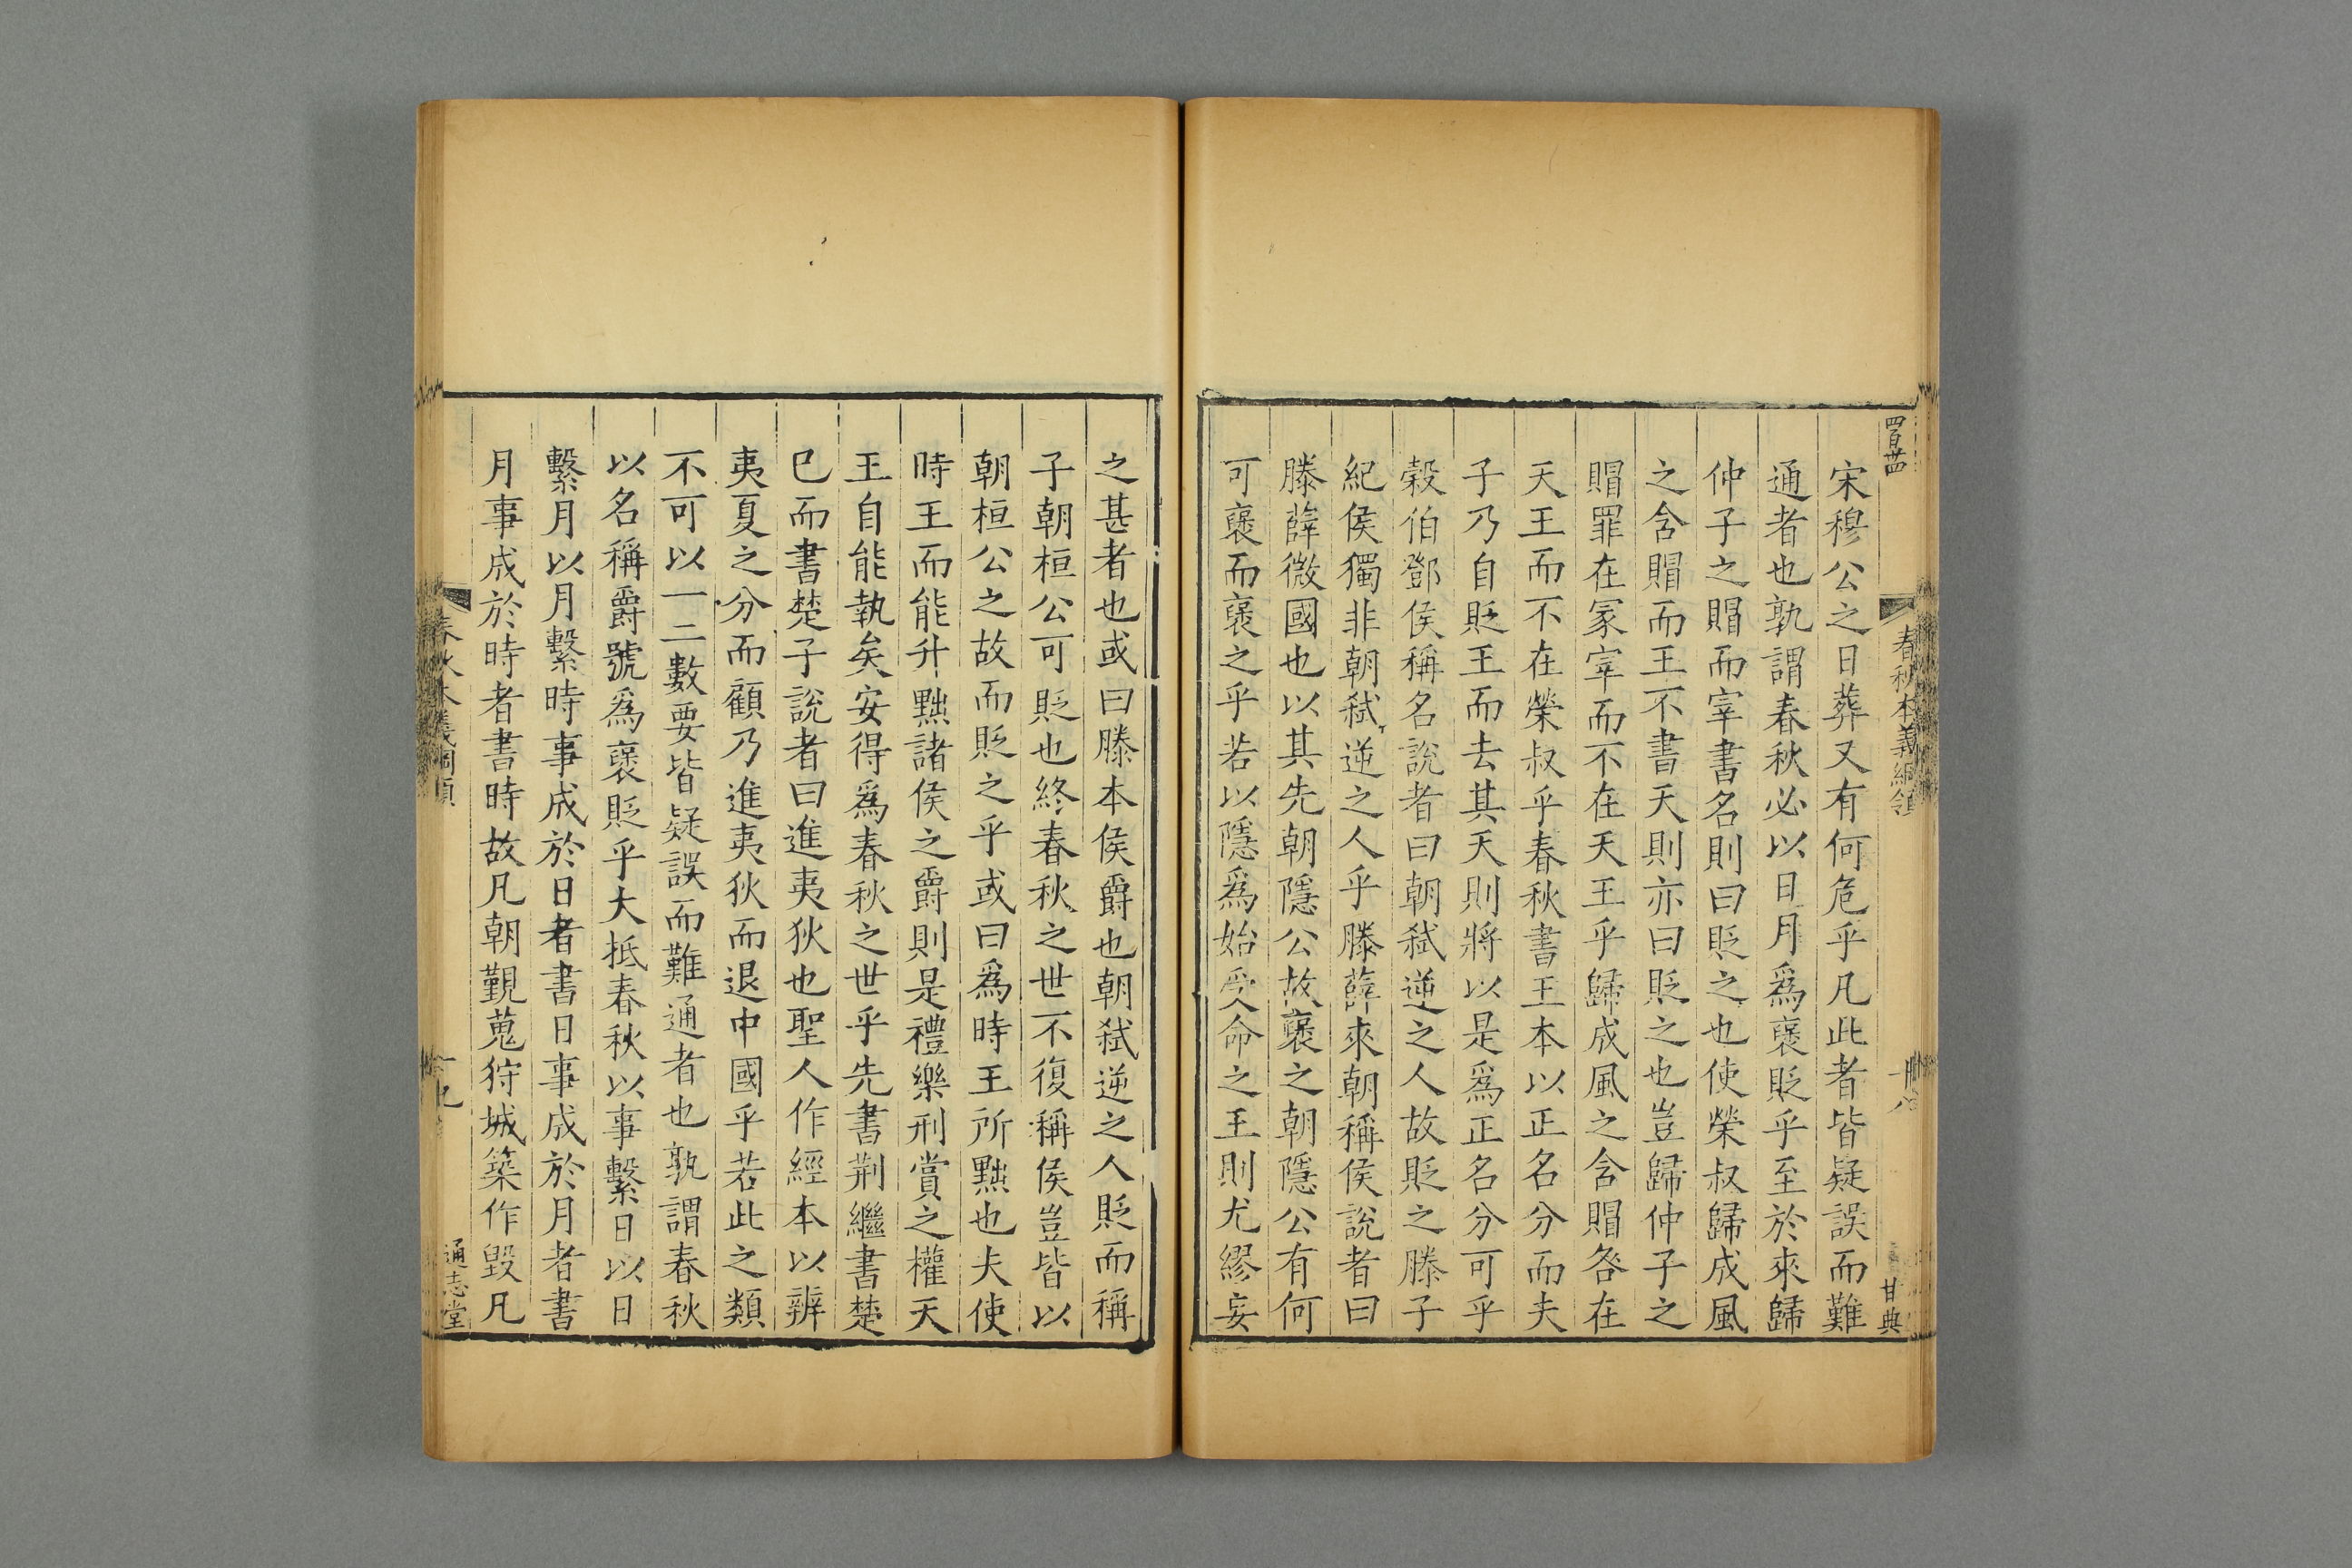 四百廿四
春秋本義綱領
十八
甘典
宋穆公之日葬又有何危乎凡此者皆疑誤而難
通者也孰謂春秋必以日月爲襃貶乎至於來歸
仲子之賵而宰書名則曰貶之也使榮叔歸成風
之含賵而王不書天則亦曰貶之也豈歸仲子之
賵罪在冢宰而不在天王乎歸成風之含賵咎在
天王而不在榮叔乎春秋書王本以正名分而夫
子乃自貶王而去其天則將以是爲正名分可乎
穀伯鄧侯稱名說者曰朝弒逆之人故貶之滕子
紀侯獨非朝弒逆之人乎滕薛來朝稱侯說者曰
滕薛微國也以其先朝隱公故襃之朝隱公有何
可襃而襃之乎若以隱爲始受命之王則尤繆妄
之甚者也或曰滕本侯爵也朝弒逆之人貶而稱
子朝桓公可貶也終春秋之世不復稱侯豈皆以
朝桓公之故而貶之乎或曰爲時王所黜也夫使
時王而能升黜諸侯之爵則是禮樂刑賞之權天
王自能執矣安得爲春秋之世乎先書荆繼書楚
巳而書楚子說者曰進夷狄也聖人作經本以辨
夷夏之分而顧乃進夷狄而退中國乎若此之類
不可以一二數要皆疑誤而難通者也孰謂春秋
以名稱爵號爲襃貶乎大抵春秋以事繫日以日
繫月以月繫時事成於日者書日事成於月者書
月事成於時者書時故凡朝覲蒐狩城築作毀凡
春秋本義綱領
十九
通志堂